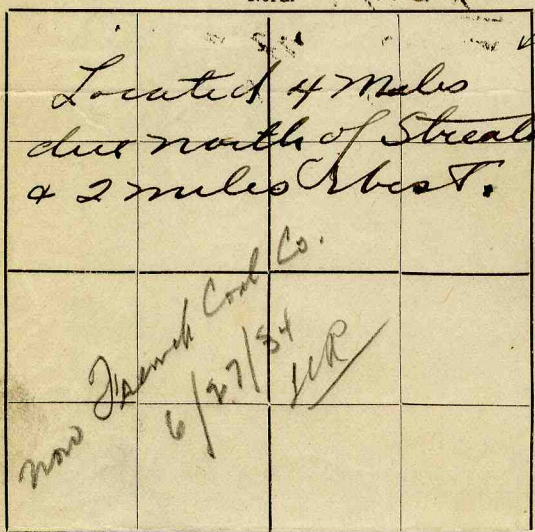 Located 4 Miles
due north of Streat
& 2 miles West.
now French Coal Co.
6/27/34